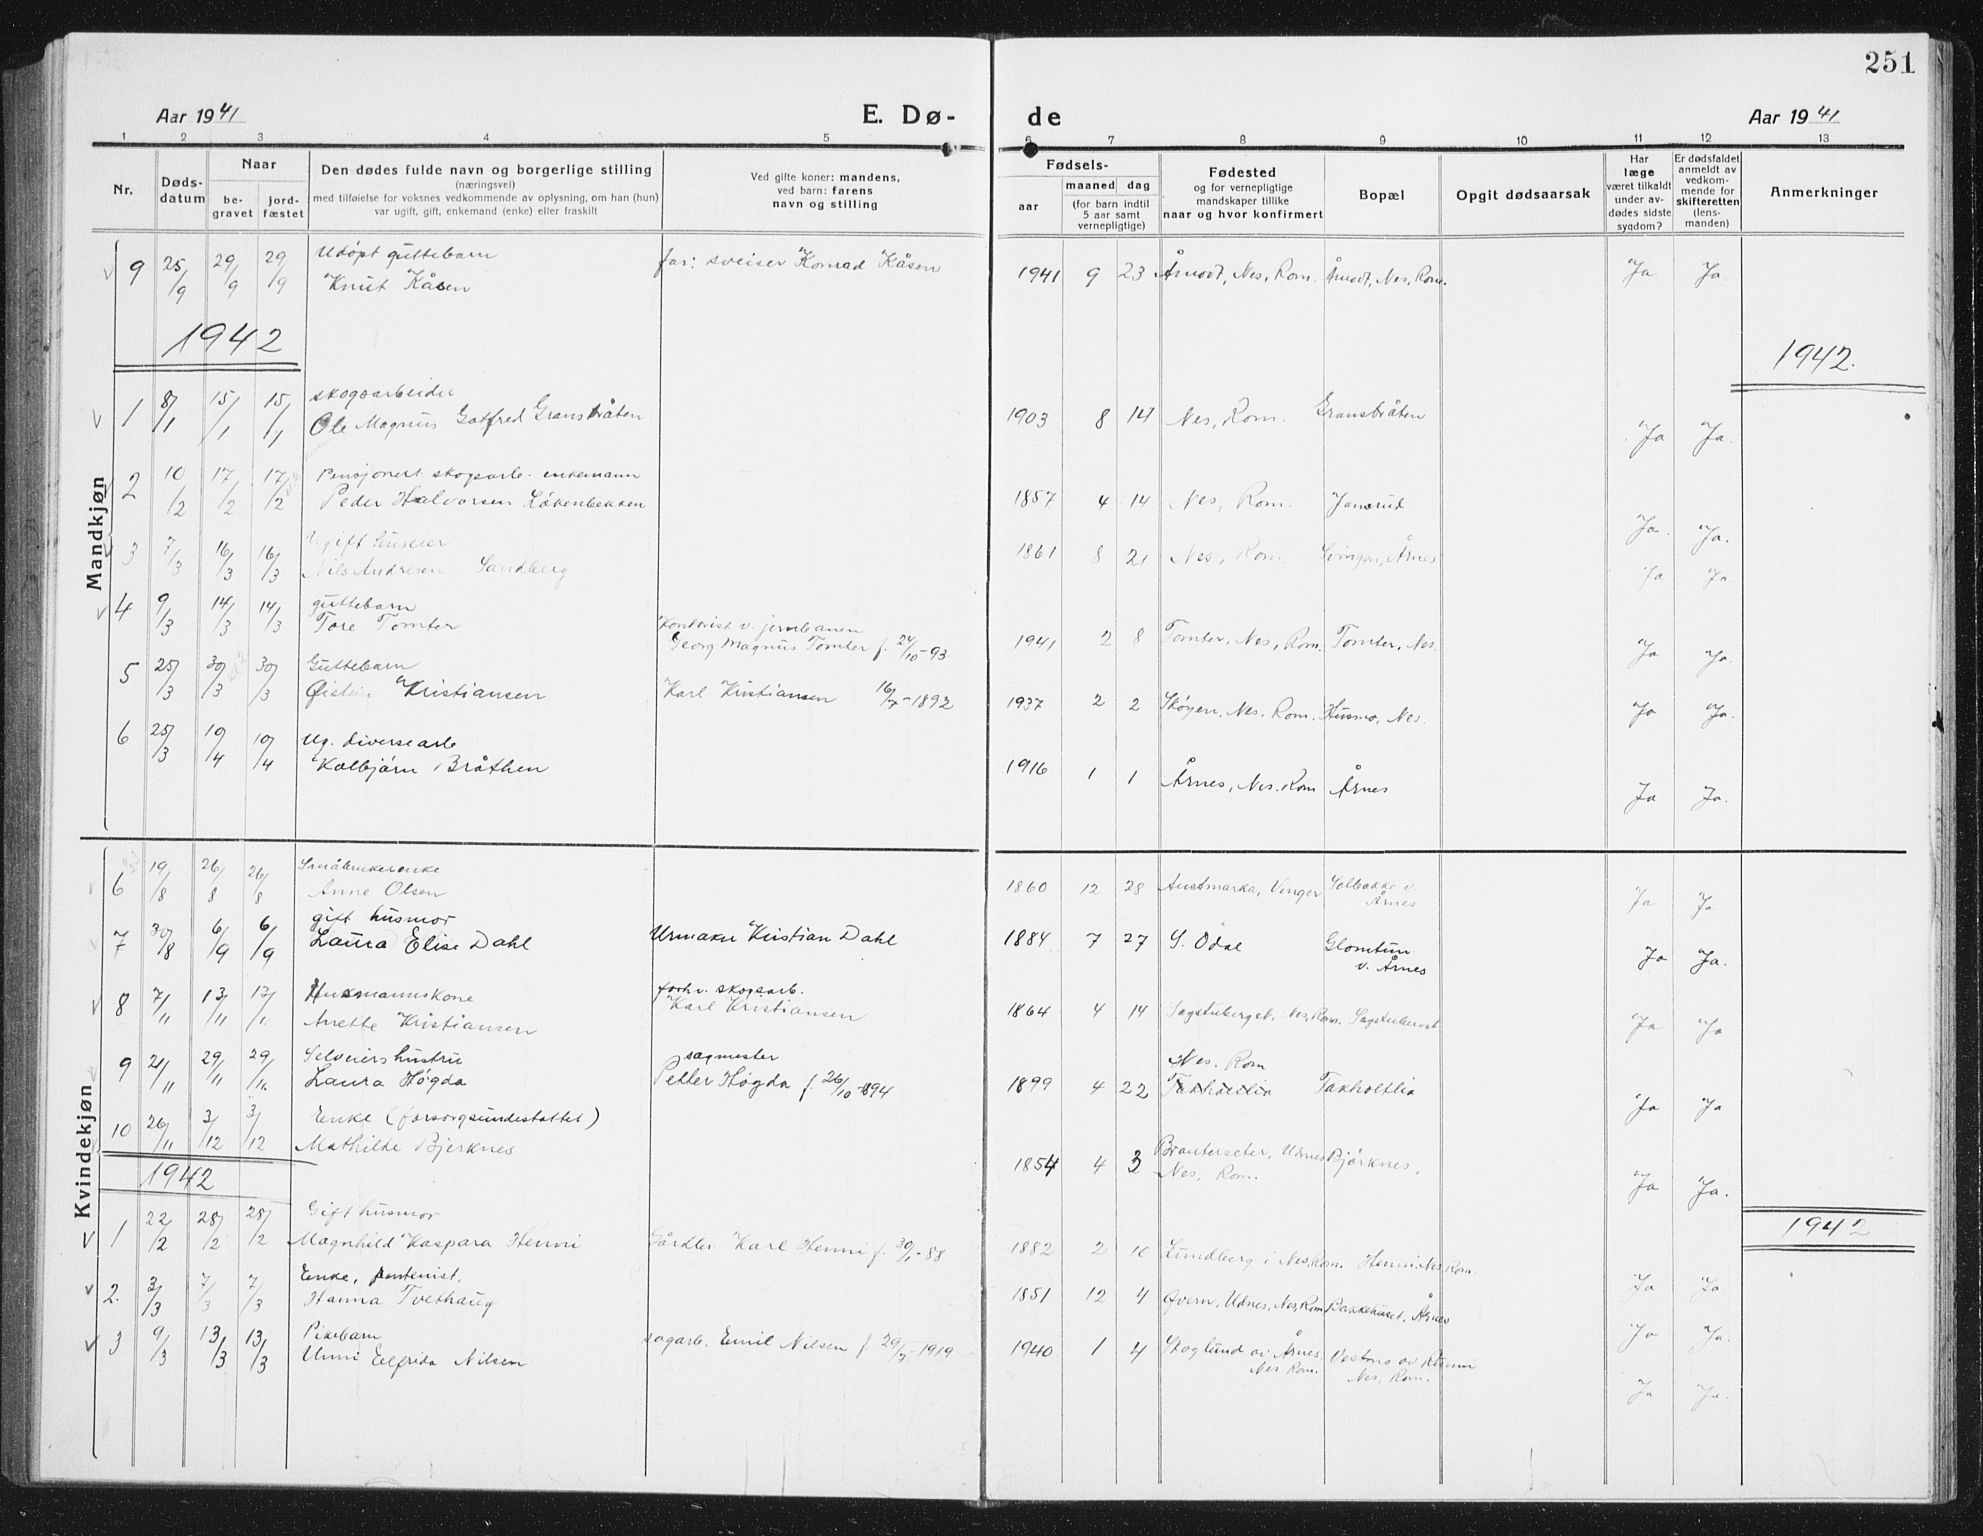 251
Aar 1941
E. Dø-
de
Aar 1941
1 2 3 4 5 6 7 8 9 10 11 12 13
Nr.
Døds-
datum
Naar
be-
gravet
jord-
fæstet
Den dødes fulde navn og borgerlige stilling
(næringsvei)
med tilføielse for voksnes vedkommende av oplysning, om han (hun)
var ugift, gift, enkemand (enke) eller fraskilt
Ved gifte koner: mandens,
ved barn: farens
navn og stilling
Fødsels-
aar
maaned dag
(for barn indtil
5 aar samt
vernepligtige)
Fødested
og for vernepligtige
mandskaper tillike
naar og hvor konfirmert
Bopæl
Opgit dødsaarsak
Har
læge
været tilkaldt
under av-
dødes sidste
sygdom?
Er dødsfaldet
anmeldt av
vedkom-
mende for
skifteretten
(lens-
manden)
Anmerkninger
Mandkjøn
9 25/9 29/9 29/9 Udøpt guttebarn
Knut Kåsen
far: sveiser Konrad Kåsen
1941 9 23 Åmodt, Nes, Rom. Åmodt, Nes, Rom. Ja Ja.
1942
1942.
1 8/1 15/1 15/1 skogsarbeider
Ole Magnus Gotfred Gransbråten
1903 8 14 Nes, Rom. Gransbråten Ja Ja.
2 10/2 17/2 17/2 Pensjonert skogsarb. enkemann
Peder Halvorsen Løkenbekken
1857 4 14 Nes, Rom. Ja. Ja.
3 7/3 16/3 16/3 Ugift huseier
Nils Andresen Sandberg
1861 8 21 Nes, Rom. Årnes Ja Ja.
4 9/3 14/3 14/3 guttebarn
Tore Tomter
v. jernbanen
Georg Magnus Tomter f. 24/10-93
1941 2 8 Tomter, Nes, Rom. Tomter, Nes. Ja Ja.
5 25/3 30/3 30/3 Guttebarn
Øistein Kristiansen
Karl Kristiansen 16/7-1892
1937 2 2 Skøyen, Nes. Rom. Husmo, Nes. Ja Ja.
6 25/3 10/4 10/4 Ug. diversearb
Kolbjørn Bråthen
1916 1 1 Årnes, Nes. Rom Årnes Ja Ja.
Kvindekjøn
6 19/8 26/8 26/8 Småbrukerenke
Anne Olsen
1860 12 28 Austmarka, Vinger Solbakke v.
Årnes
Ja Ja
7 30/8 6/9 6/9 gift husmor
Laura Elise Dahl
Urmaker Kristian Dahl
1884 7 27 S. Odal Glomtun
v. Årnes
Ja Ja.
8 7/11 13/11 13/11 Husmannskone
Anette Kristiansen
forh.v. skogsarb.
Karl Kristiansen
1864 4 14 Sagstuberget, Nes, Rom. Sagstuberget Ja Ja
9 21/11 29/11 29/11 Selveiers hustru
Laura Høgda
sagmester
Petter Høgda f. 26/10-1894
1899 4 22 Nes. Rom
Takholtlia Takholtlia Ja Ja
10 26/11 3/12 3/12 Enke (forsorgsunderstøttet)
Mathilde Bjerknes
1854 4 3 Brauterseter, Udnes Bjørknes.
Nes, Rom.
Ja Ja.
1942
1942
1 22/2 28/2 28/2 Gift husmor
Magnhild Kaspara Henni
Gårdbr. Karl Henni f. 30/1-88
1882 2 10 Lundberg i Nes, Rom. Henni Nes Rom. Ja Ja
2. 3/3 7/3 7/3 Enke, rentenist,
Hanna Tvethaug
1851 12 4 Øvern, Udnes, Nes, Rom Bakkehuset, Årnes Ja Ja.
3 9/3 13/3 13/3 Pikebarn
Unni Elfrida Nilsen
sagarb. Emil Nilsen f. 29/7-1919
1940 1 4 Skoglund av Årnes. Vestmo av
Nes Rom. Nes, Rom.
Ja Ja.